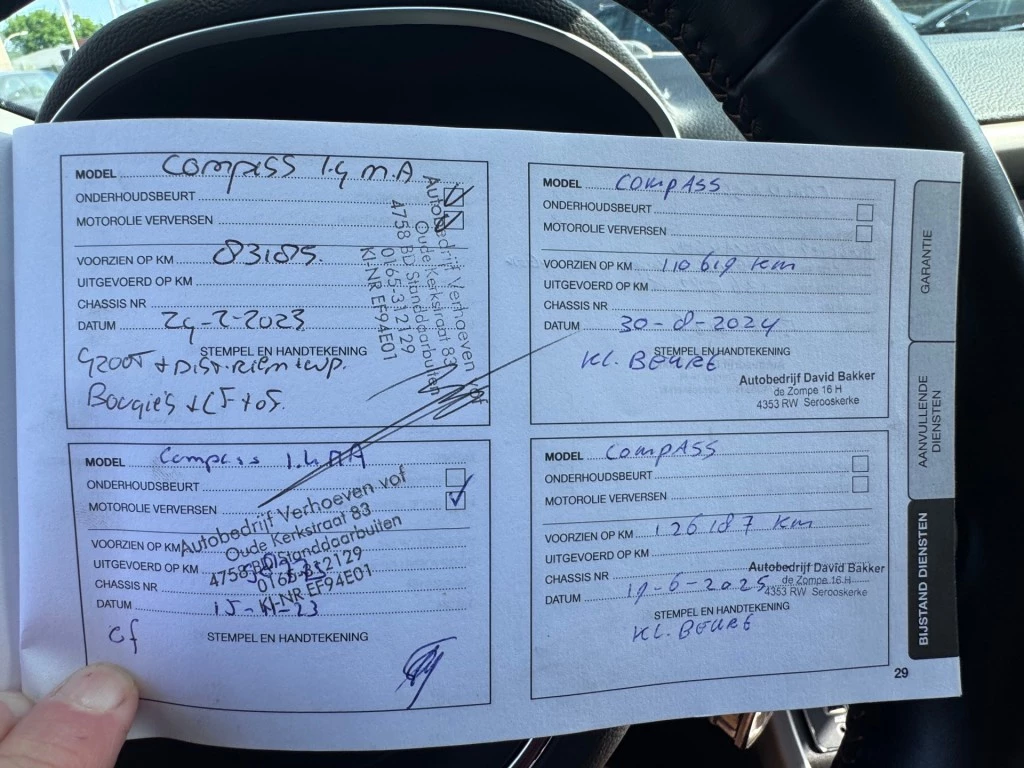 MODEL Compass 1.4 MA
ONDERHOUDSBEURT
MOTOROLIE VERVERSEN
VOORZIEN OP KM 83185
UITGEVOERD OP KM
CHASSIS NR
DATUM 24-2-2023
STEMPEL EN HANDTEKENING
Groot + Distr.riem + wp.
Bougies + LF + oF.
Autobedrijf Verhoeven vof
Oude Kerkstraat 83
4758 BD Standdaarbuiten
0165-312129
KI-NR EF94E01
MODEL Compass 1.4 MA
ONDERHOUDSBEURT
MOTOROLIE VERVERSEN
VOORZIEN OP KM
UITGEVOERD OP KM
CHASSIS NR
DATUM
STEMPEL EN HANDTEKENING
of
Autobedrijf Verhoeven vof
Oude Kerkstraat 83
4758 BD Standdaarbuiten
0165-312129
KI-NR EF94E01
MODEL COMPASS
ONDERHOUDSBEURT
MOTOROLIE VERVERSEN
VOORZIEN OP KM 110619 km
UITGEVOERD OP KM
CHASSIS NR
DATUM 30-8-2024
STEMPEL EN HANDTEKENING
KL. BEURT
Autobedrijf David Bakker
de Zompe 16 H
4353 RW Serooskerke
MODEL COMPASS
ONDERHOUDSBEURT
MOTOROLIE VERVERSEN
VOORZIEN OP KM 126187 km
UITGEVOERD OP KM
CHASSIS NR
Autobedrijf David Bakker
de Zompe 16 H
4353 RW Serooskerke
DATUM 19-6-2025
STEMPEL EN HANDTEKENING
KL. BEURT
29
GARANTIE
AANVULLENDE
DIENSTEN
BIJSTAND DIENSTEN